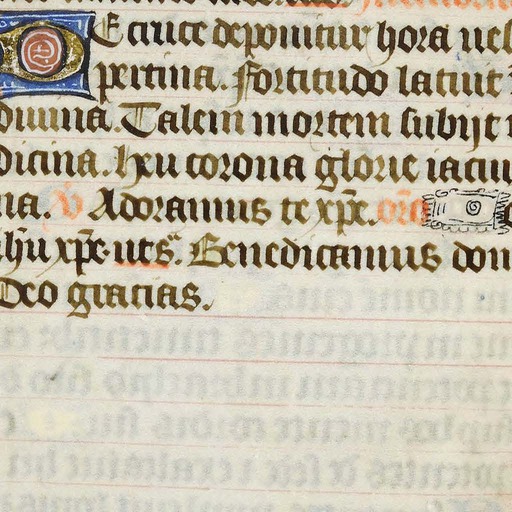 De cruce deponitur hora ues
pertina. Fortitudo latuit
diuina. Talem mortem subijt
dicina. Heu corona glorie iacui
na. V Adoramus te xp̄e. or̄o
ihū xp̄e uts̄. Benedicamus dom
Deo gracias.